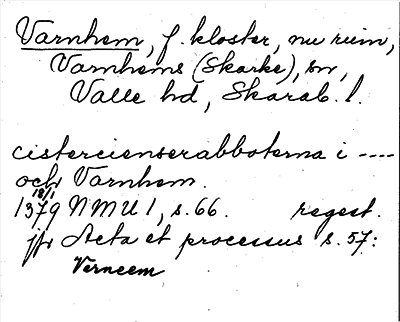 Varnhem, f. kloster, nu ruin,
Varnhems (Skarke), sn,
Valle hd, Skarab. l.
cistercienserabboterna i ----
och Varnhem.
18/1
1379 NMU 1, s. 66. regest.
jfr Acta et processus s. 57:
Verneem